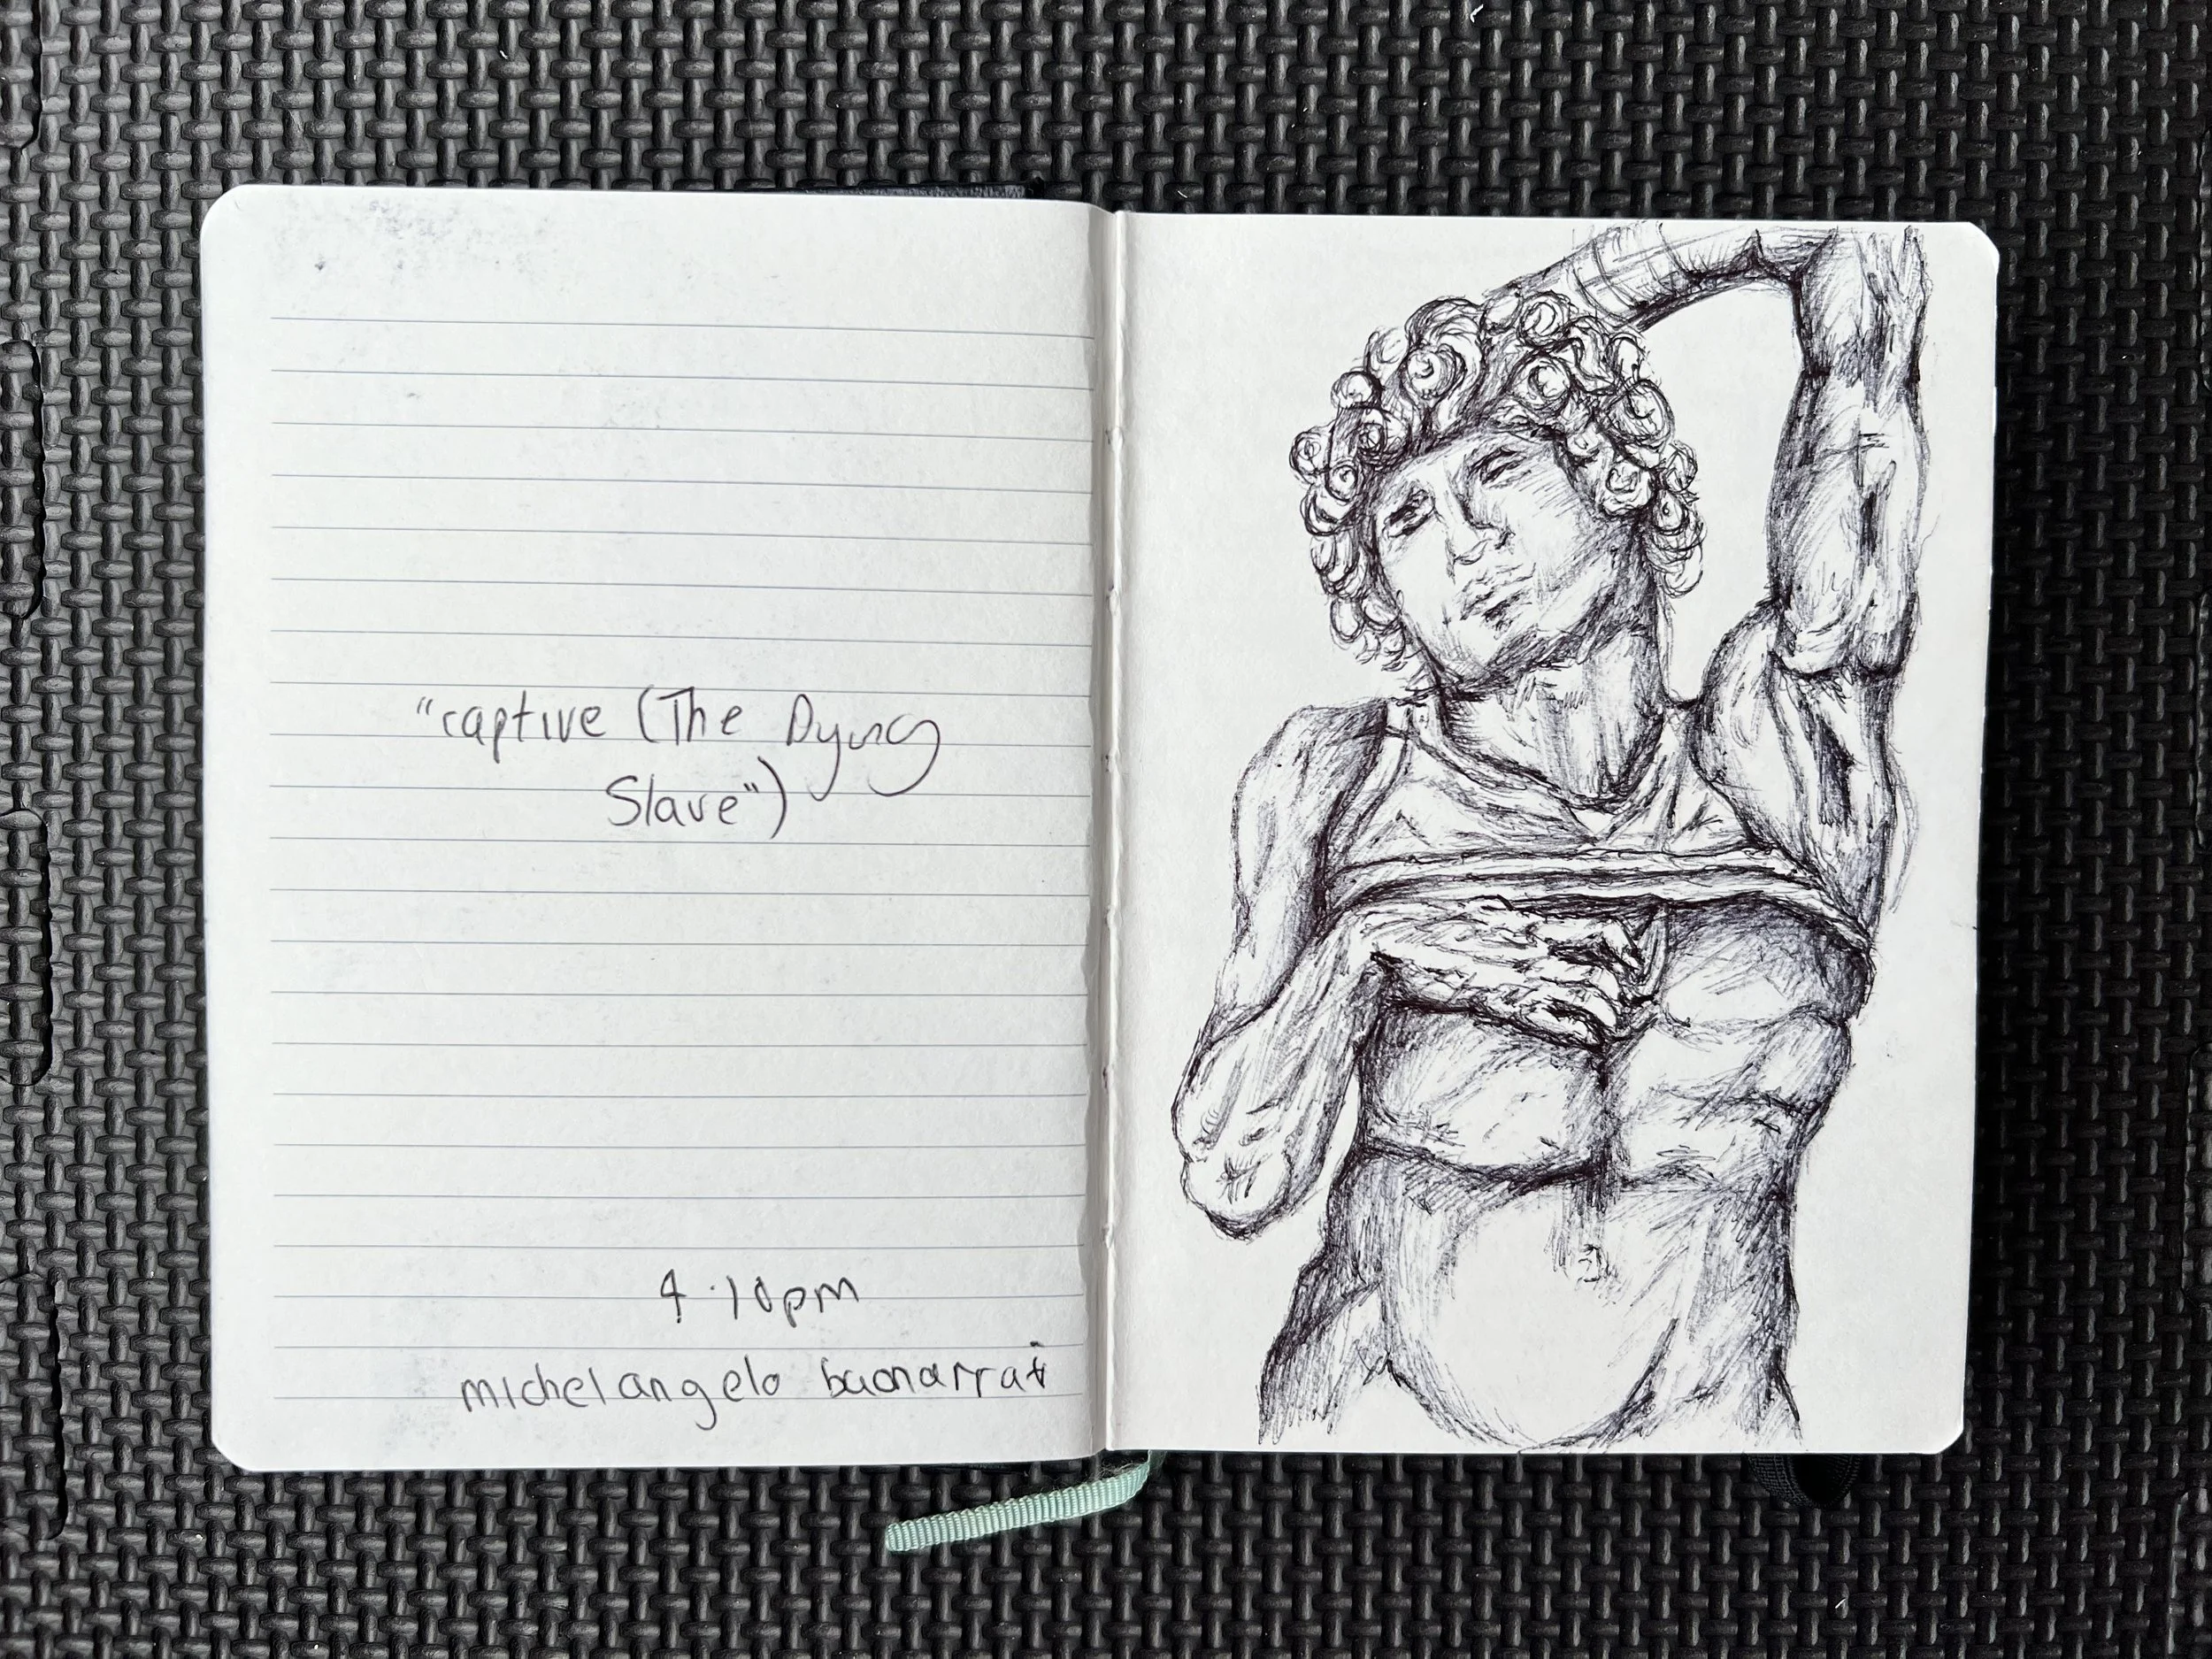 "captive (The Dying
Slave")
4.10pm
michelangelo buonarrati